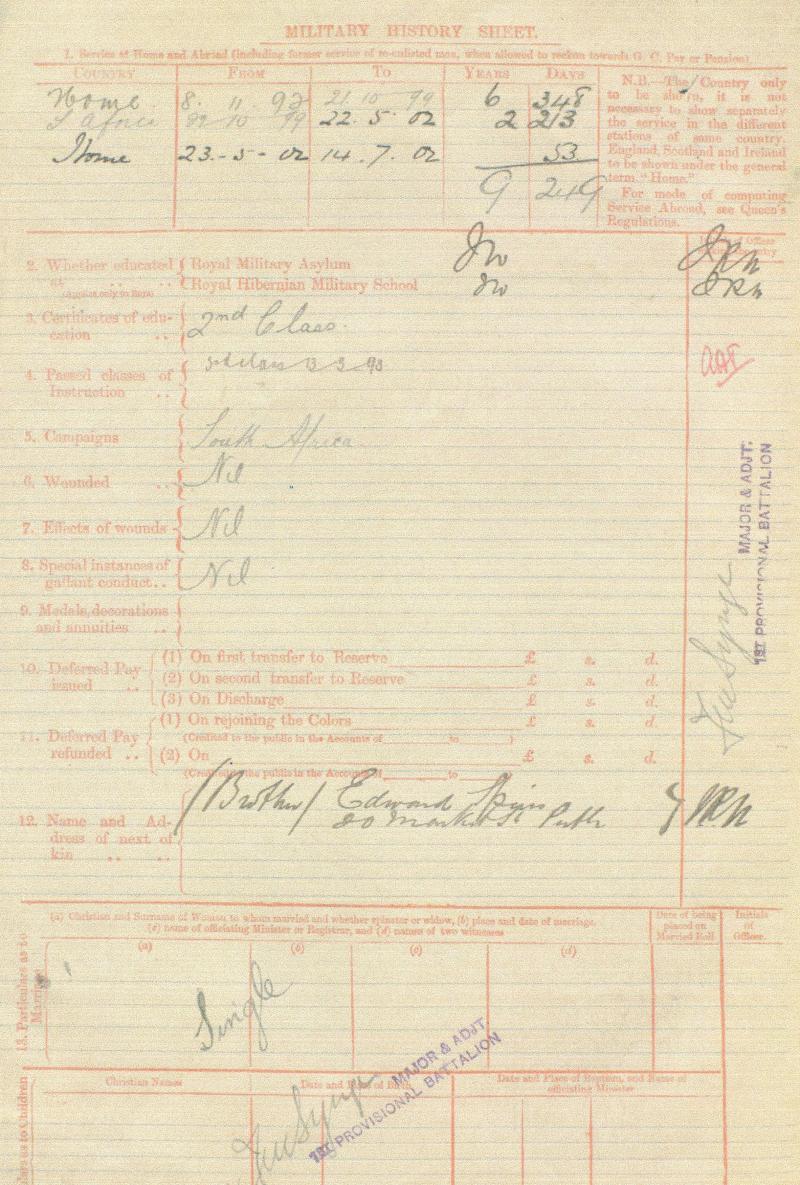 MILITARY HISTORY SHEET.
1. Service at Home and Abroad (including former service of re-enlisted men, when allowed to reckon towards G. C. Pay or Pension).
COUNTRY FROM TO YEARS DAYS
Home 8. 11. 92 21 10 99 6 348
S Africa 22 10 99 22. 5 02 2 213
Home 23.-5-02 14. 7. 02 53
9 249
N.B.—The Country only
to be shown, it is not
necessary to show separately
the service in the different
stations of same country.
England, Scotland and Ireland
to be shown under the general
term "Home."
For mode of computing
Service Abroad, see Queen's
Regulations.
2. Whether educated at .. .. (Applies only to Boys)
Royal Military Asylum No
Royal Hibernian Military School No
3. Certificates of edu-
cation .. 2nd Class.
4. Passed classes of
Instruction .. 3rd Class 13 3 93
5. Campaigns South Africa
6. Wounded .. Nil
7. Effects of wounds Nil
8. Special instances of
gallant conduct.. Nil
9. Medals, decorations
and annuities ..
10. Deferred Pay
issued ..
(1) On first transfer to Reserve £ s. d.
(2) On second transfer to Reserve £ s. d.
(3) On Discharge £ s. d.
11. Deferred Pay
refunded ..
(1) On rejoining the Colors £ s. d.
(Credited to the public in the Accounts of to )
(2) On £ s. d.
(Credited to the public in the Accounts of to
12. Name and Ad-
dress of next of
kin .. ..
(Brother) Edward
20 Market St Perth
MAJOR & ADJT.
1ST PROVISIONAL BATTALION
(a) Christian and Surname of Woman to whom married and whether spinster or widow, (b) place and date of marriage,
(c) name of officiating Minister or Registrar, and (d) names of two witnesses
Date of being
placed on
Married Roll
Initials
of
Officer.
13. Particulars as to
Marriage
(a) (b) (c) (d)
Single
Christian Names
Date and Place of Birth
Date and Place of Baptism, and Name of
officiating Minister
as to Children
MAJOR & ADJT.
1ST PROVISIONAL BATTALION